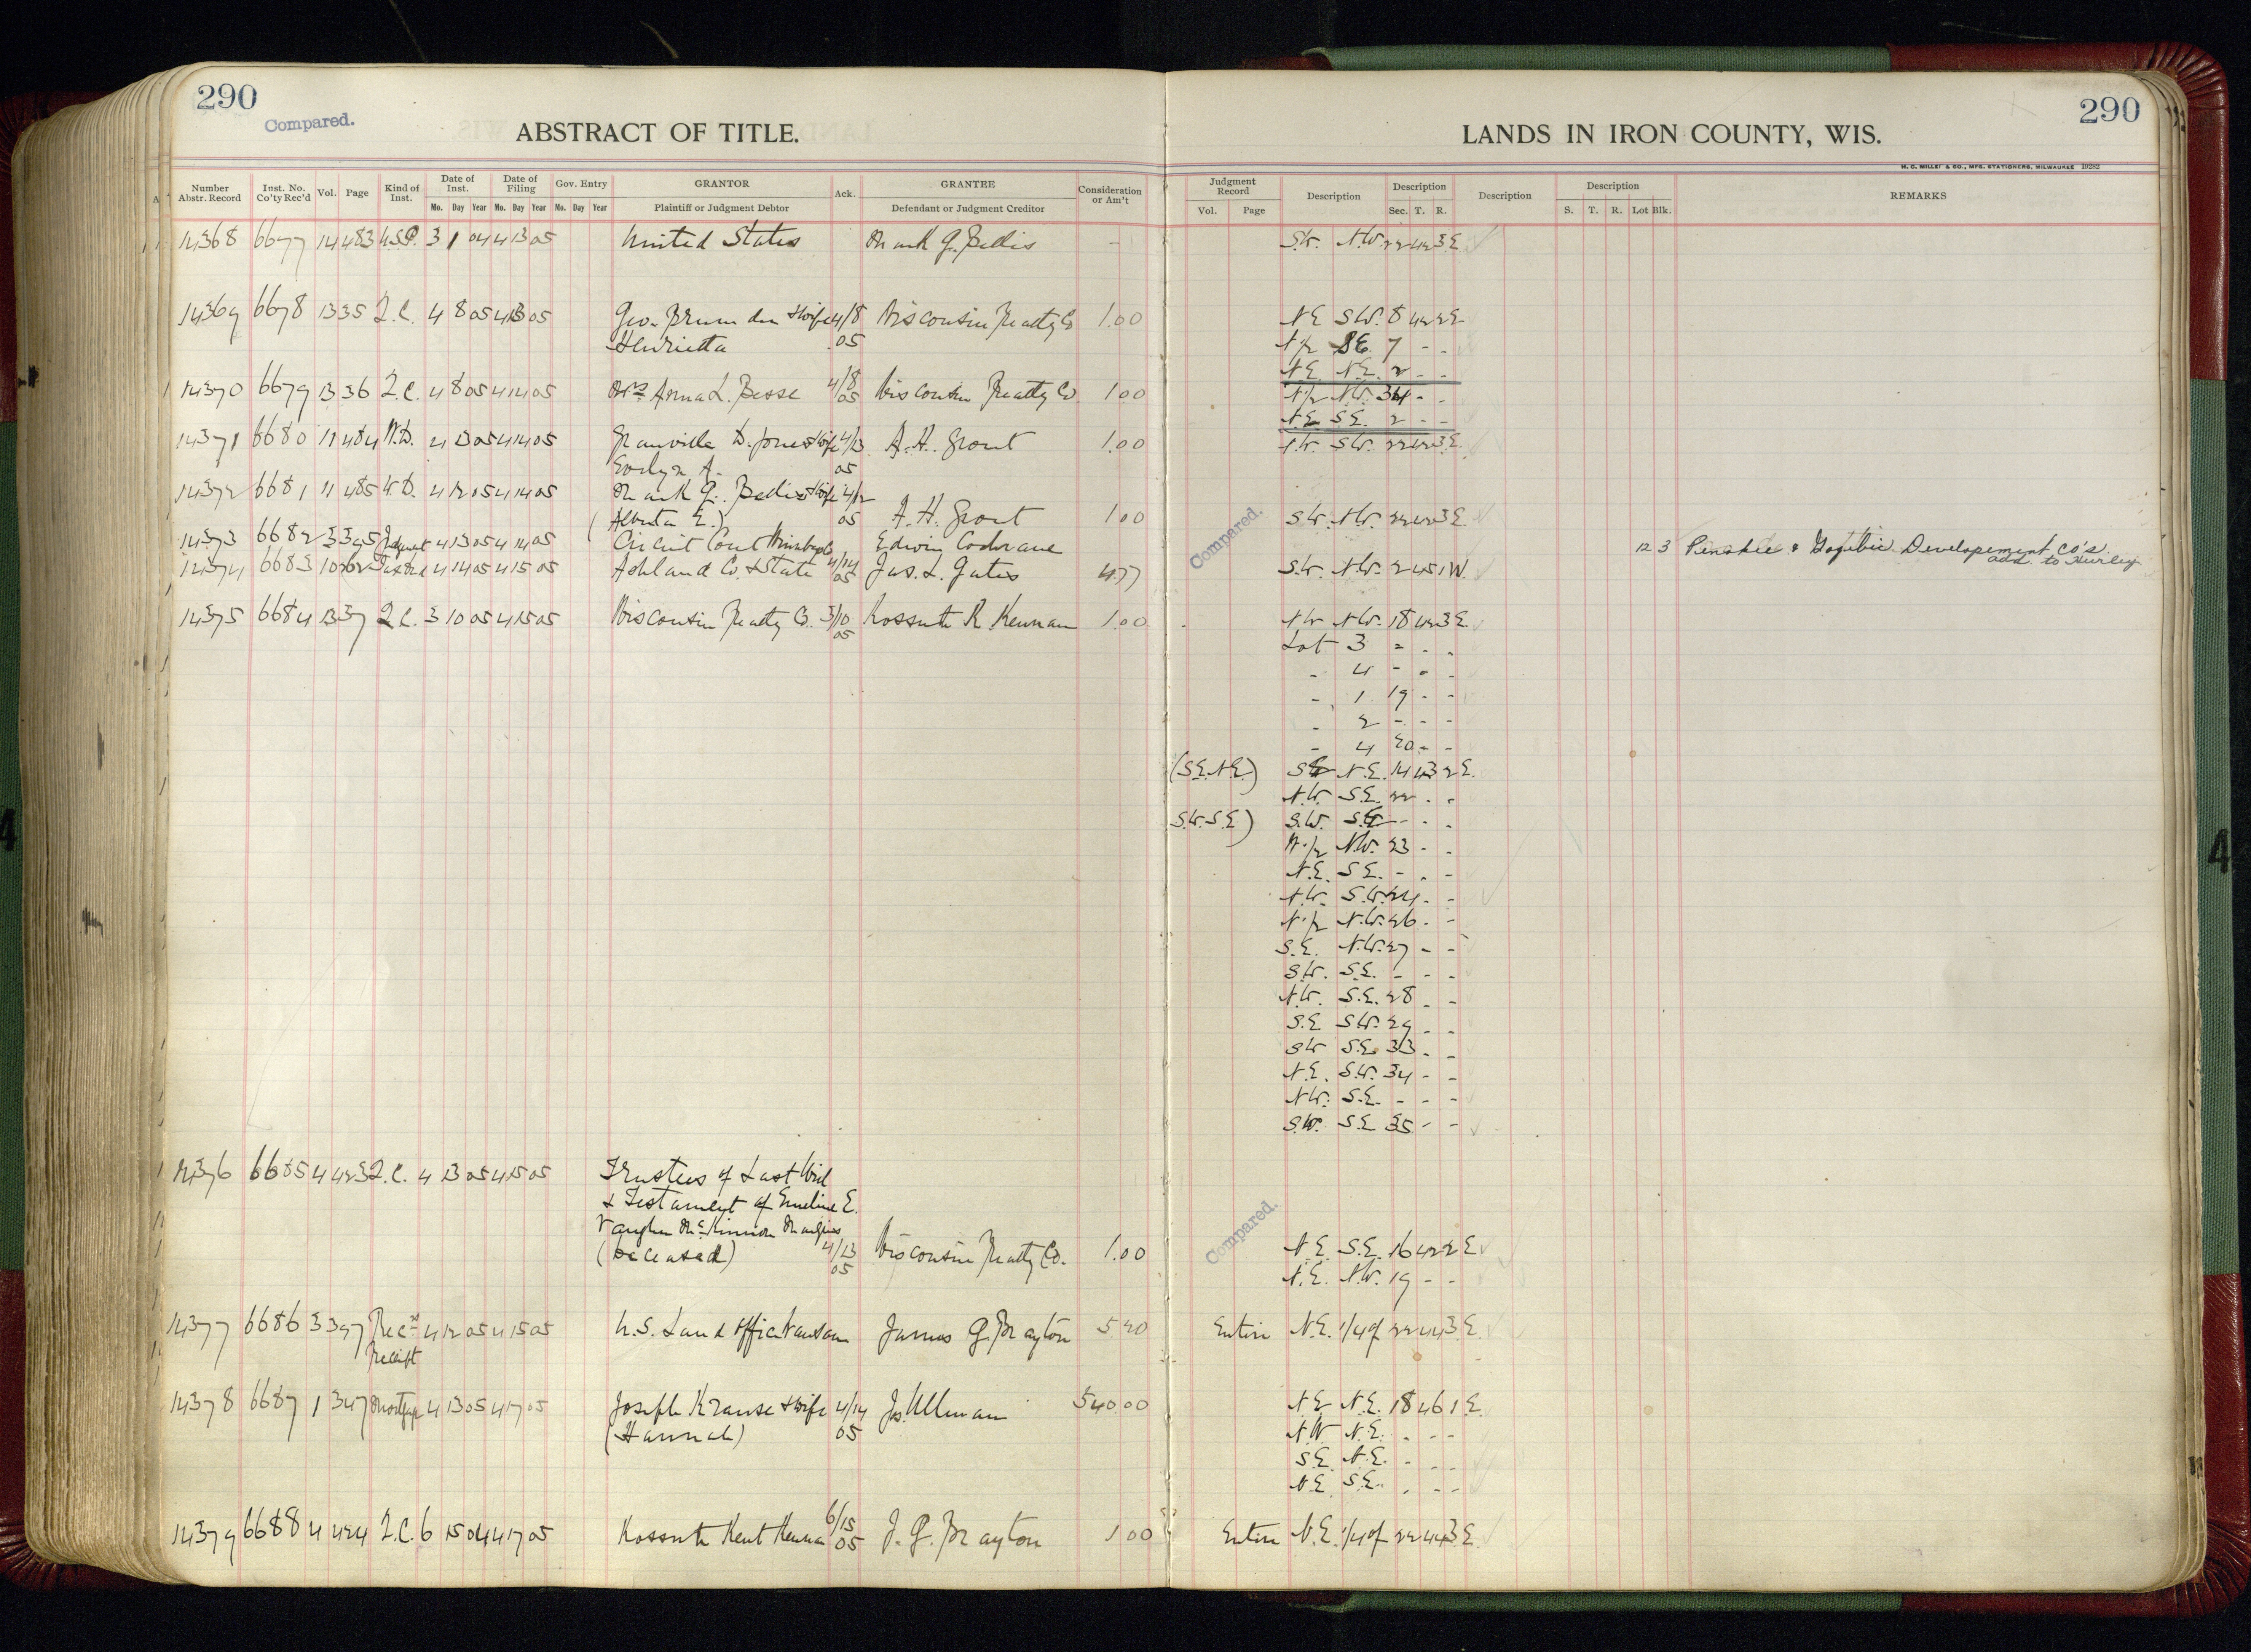 290
Compared.
ABSTRACT OF TITLE.
Number Abstr. Record Inst. No. Co'ty Rec'd Vol. Page Kind of Inst. Date of Inst. Date of Filing Gov. Entry GRANTOR Ack. GRANTEE Consideration or Am't
Mo. Day Year Mo. Day Year Mo. Day Year Plaintiff or Judgment Debtor Defendant or Judgment Creditor
14368 6677 14 483 U.S.P. 3 1 04 4 13 05 United States Mark G. Bellis
14369 6678 13 35 Q.C. 4 8 05 4 13 05 Geo. Brumder & Wife 4/8 Wisconsin Realty Co 1.00
Henrietta 05
14370 6679 13 36 Q.C. 4 8 05 4 14 05 Mrs Anna L. Besse 4/8 05 Wisconsin Realty Co 1.00
14371 6680 11 484 W.D. 4 13 05 4 14 05 Granville D. Jones & Wife 4/13 A.H. Grout 1.00
Evelyn A. 05
14372 6681 11 485 W.D. 4 12 05 4 14 05 Mark G. Bellis & Wife 4/12
(Alberta E.) 05 A.H. Grout 1.00
14373 6682 3 395 Judgment 4 13 05 4 14 05 Circuit Court Edwin Cochrane
14374 6683 10 262 Tax Deed 4 14 05 4 15 05 Ashland Co. & State 4/14 05 Jas. L. Gates 4.77
14375 6684 13 37 Q.C. 3 10 05 4 15 05 Wisconsin Realty Co. 3/10 05 Kossuth K. Kennan 1.00
14376 6685 4 423 Q.C. 4 13 05 4 15 05 Trustees of Last Will
& Testament of Emeline E.
Vaughn
(Deceased) 4/13 05 Wisconsin Realty Co. 1.00
14377 6686 3 397 Rec's 4 12 05 4 15 05 U.S. Land Office Wausau James G. Brayton 5.20
Receipt
14378 6687 1 347 Mortgage 4 13 05 4 17 05 Joseph Krause & Wife 4/14 Jos. Ullman 540.00
(Hannah) 05
14379 6688 4 424 Q.C. 6 15 04 4 17 05 Kossuth Kent Kennan 6/15 05 J. G. Brayton 1 00
290
LANDS IN IRON COUNTY, WIS.
H. C. MILLER & CO., MFG. STATIONERS, MILWAUKEE 19282
Judgment Record Description Description Description Description REMARKS
Vol. Page Sec. T. R. S. T. R. Lot Blk.
S.W. N.W. 22 42 3 E
N E S.W. 8 42 2 E
N 1/2 S E. 7 - -
N.E. N.E. 2 - -
N 1/2 N.W. 34 - -
N.E. S.E. 2 - -
N.W. S.W. 22 42 3 E.
Compared.
S.W. N.W. 22 42 3 E
12 3 Penokee & Gogebic Developement Co's
add. to Hurley
S.W. N.W. 2 45 1 W.
N.W. N.W. 18 42 3 E.
Lot 3 - - -
- 4 - - -
- 1 19 - -
- 2 - - -
- 4 20 - -
(S.E.N.E.) SE N.E. 14 43 2 E.
N.W. S.E. 22 - -
S.W.S.E) S.W. S.E. - - -
N 1/2 N.W. 23 - -
N.E. S.E. - - -
N.W. S.W. 24 - -
N 1/2 N.W. 26 - -
S.E. N.W. 27 - -
S.W. S.E. - - -
N.W. S.E. 28 - -
S.E S.W. 29 - -
S.W S.E. 33 - -
N.E. S.W. 34 - -
N.W. S.E. - - -
S.W. S.E 35 - -
Compared.
N.E. S.E. 16 42 2 E
N.E. N.W. 19 - -
Entire N.E. 1/4 of 22 44 3 E.
N.E N.E. 18 46 1 E.
N.W N.E. - - -
S.E. N.E. - - -
N.E. S.E. - - -
Entire N.E. 1/4 of 22 44 3 E.